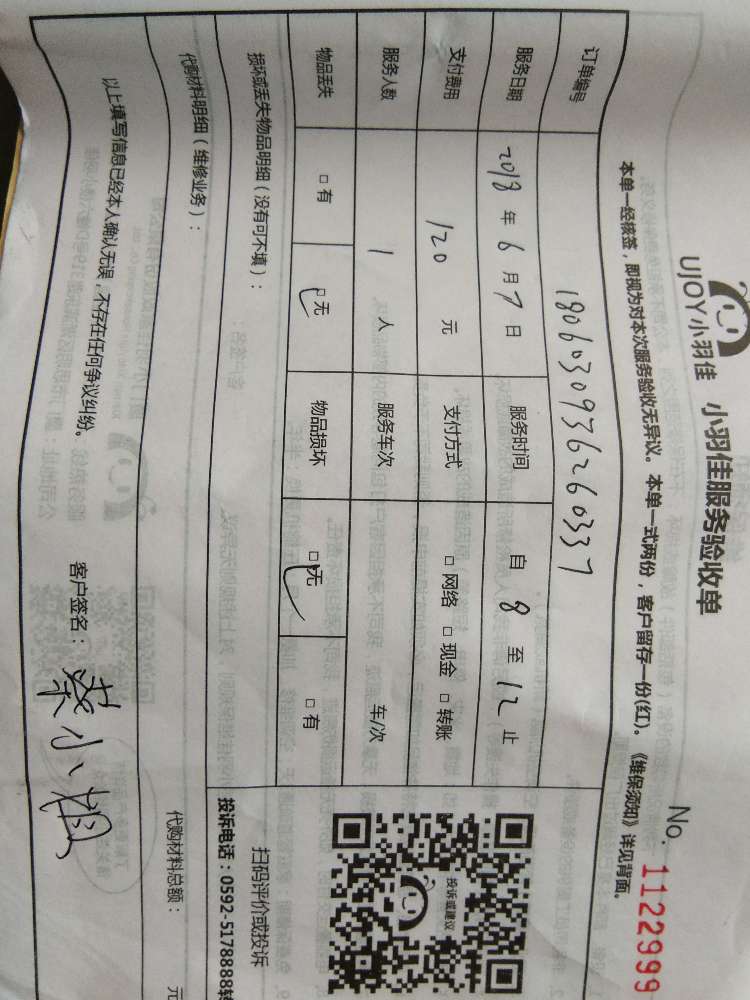 UJOY小羽佳 小羽佳服务验收单
No. 1122999
本单一经核签，即视为对本次服务验收无异议。本单一式两份，客户留存一份(红)。《维保须知》详见背面。
订单编号 180603093626260337
服务日期 2018 年 6 月 7 日 服务时间 自 8 至 12 止
支付费用 120 元 支付方式 □ 网络 □ 现金 □ 转账
服务人数 1 人 服务车次 车/次
物品丢失 □ 有 □ 无 物品损坏 □ 无 □ 有
投诉或建议
扫码评价或投诉
投诉电话：0592-5178888转
损坏或丢失物品明细（没有可不填）：
代购材料明细（维修业务）：
代购材料总额： 元
以上填写信息已经本人确认无误，不存在任何争议纠纷。 客户签名：